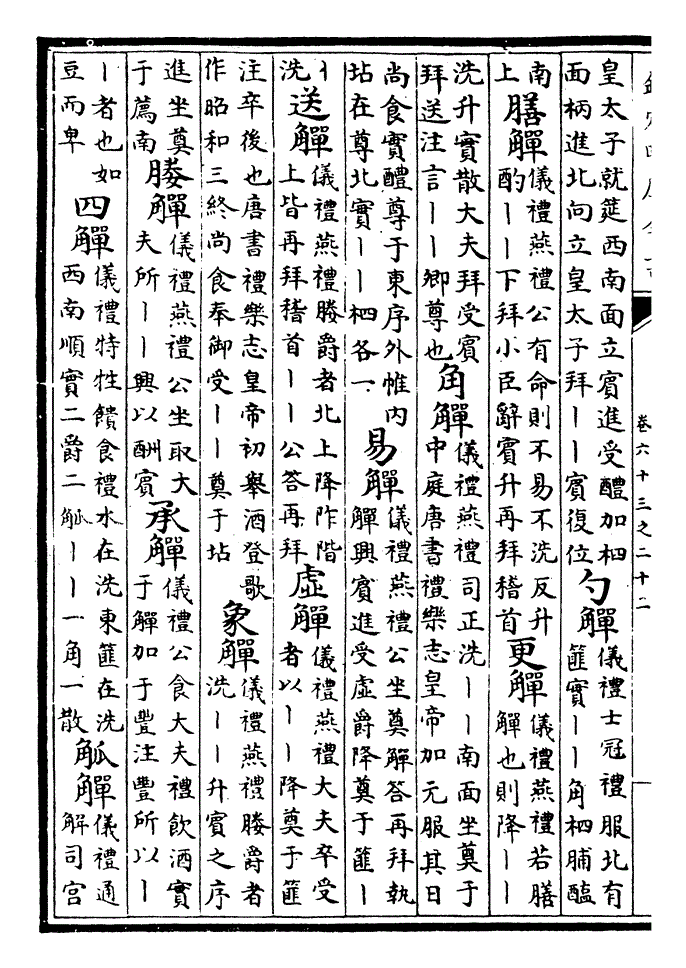 欽定四庫全書
卷六十三之二十二
皇太子就筵西南面立賓進受醴加柶
面柄進北向立皇太子拜丨丨賓復位
勺觶
儀禮士冠禮服北有
篚實丨丨角柶脯醢
南
上
膳觶
儀禮燕禮公有命則不易不洗反升
酌丨丨下拜小臣辭賓升再拜稽首
更觶
儀禮燕禮若膳
觶也則降丨丨
洗升實散大夫拜受賓
拜送注言丨丨卿尊也
角觶
儀禮燕禮司正洗丨丨南面坐奠于
中庭唐書禮樂志皇帝加元服其日
尚食實醴尊于東序外帷内
坫在尊北實丨丨柶各一
易觶
儀禮燕禮公坐奠觶答再拜執
觶興賓進受虛爵降奠于篚丨
丨
洗
送觶
儀禮燕禮媵爵者北上降阼階
上皆再拜稽首丨丨公答再拜
虛觶
儀禮燕禮大夫卒受
者以丨丨降奠于篚
注卒後也唐書禮樂志皇帝初舉酒登歌
作昭和三終尚食奉御受丨丨奠于坫
象觶
儀禮燕禮媵爵者
洗丨丨升賓之序
進坐奠
于薦南
媵觶
儀禮燕禮公坐取大
夫所丨丨興以酬賓
承觶
儀禮公食大夫禮飲酒實
于觶加于豐注豐所以丨
丨者也如
豆而卑
四觶
儀禮特牲饋食禮水在洗東篚在洗
西南順實二爵二觚丨丨一角一散
觚觶
儀禮通
解司宫